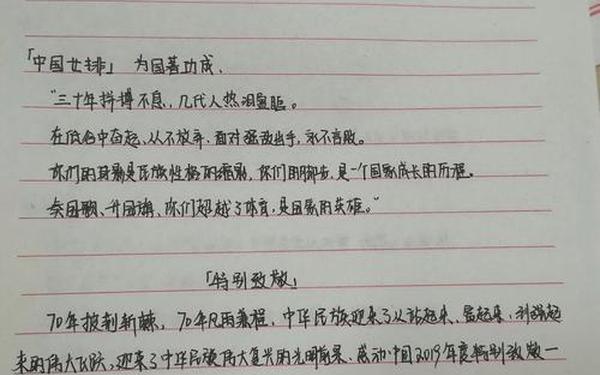 「中国女排」 为国善功成、
“三十年拼搏不息，几代人热泪盈眶。
在低谷中奋起，从不放弃，面对强敌出手，永不言败。
你们的身影是民族性格的缩影，你们的脚步，是一个国家成长的历程。
奏国歌、升国旗、你们超越了体育，是国家的英雄。”
「特别致敬」
70年披荆斩棘，70年风雨兼程，中华民族迎来了从站起来、富起来、到强起
来的伟大飞跃，迎来了中华民族伟大复兴的光明前景、感动中国2019年度特别致敬一